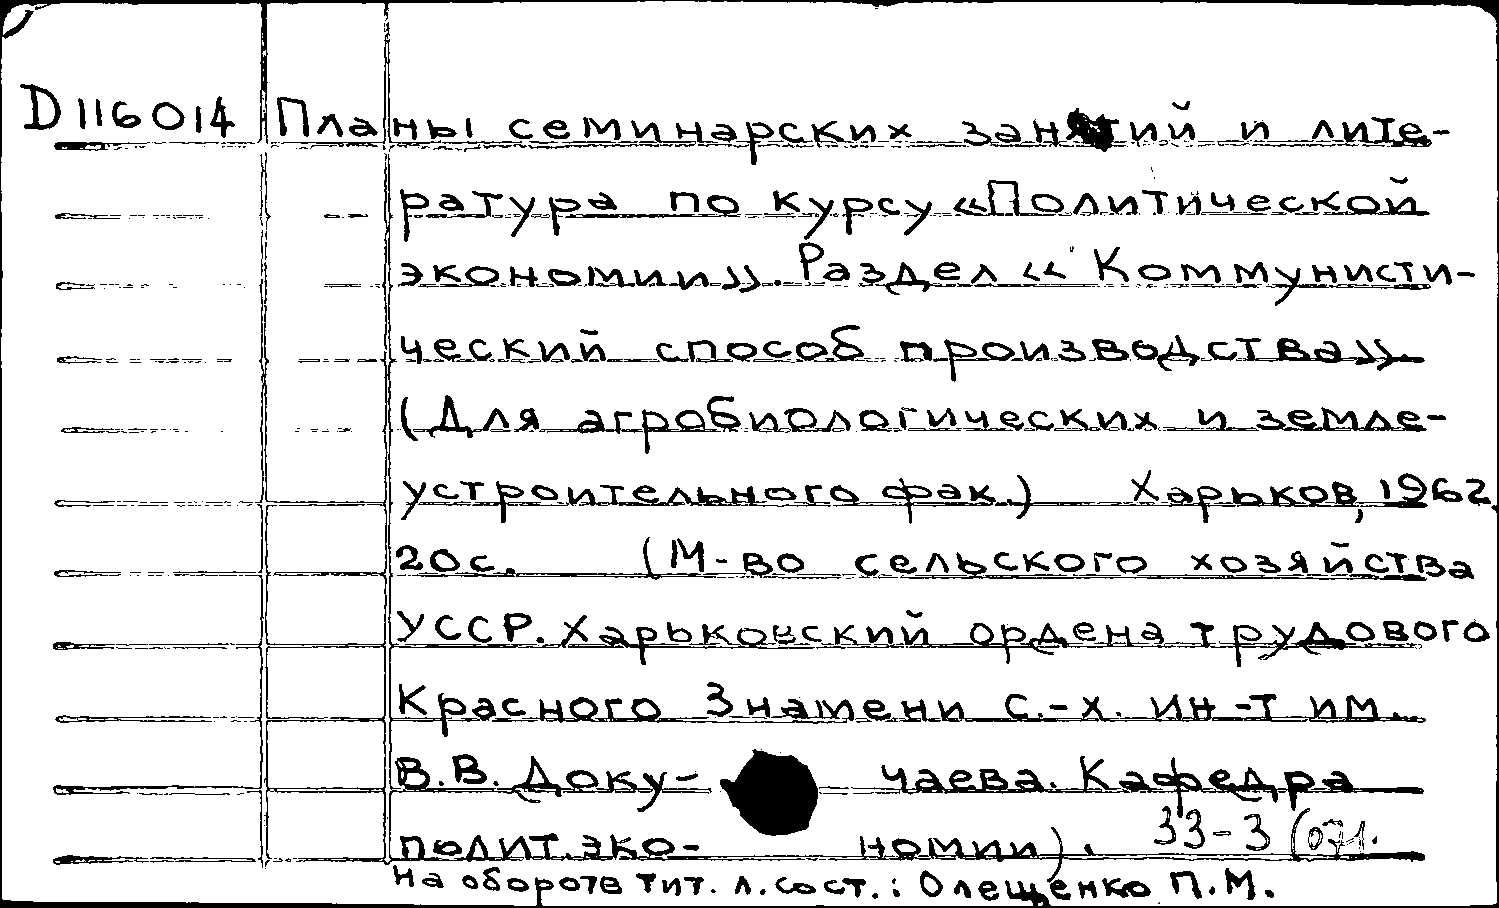 D116014 Планы семинарских занятий и лите-
ратура по курсу «Политической
экономии». Раздел «Коммунисти-
ческий способ производства».
(Для агробиологических и земле-
устроительного фак.) Харьков, 1962.
20с. (М-во сельского хозяйства
УССР. Харьковский ордена трудового
Красного Знамени с.-х. ин-т им.
В.В. Доку- чаева. Кафедра
полит.эко- номии). 33-3(071.
На обороте тит. л. сост.: Олещенко П.М.